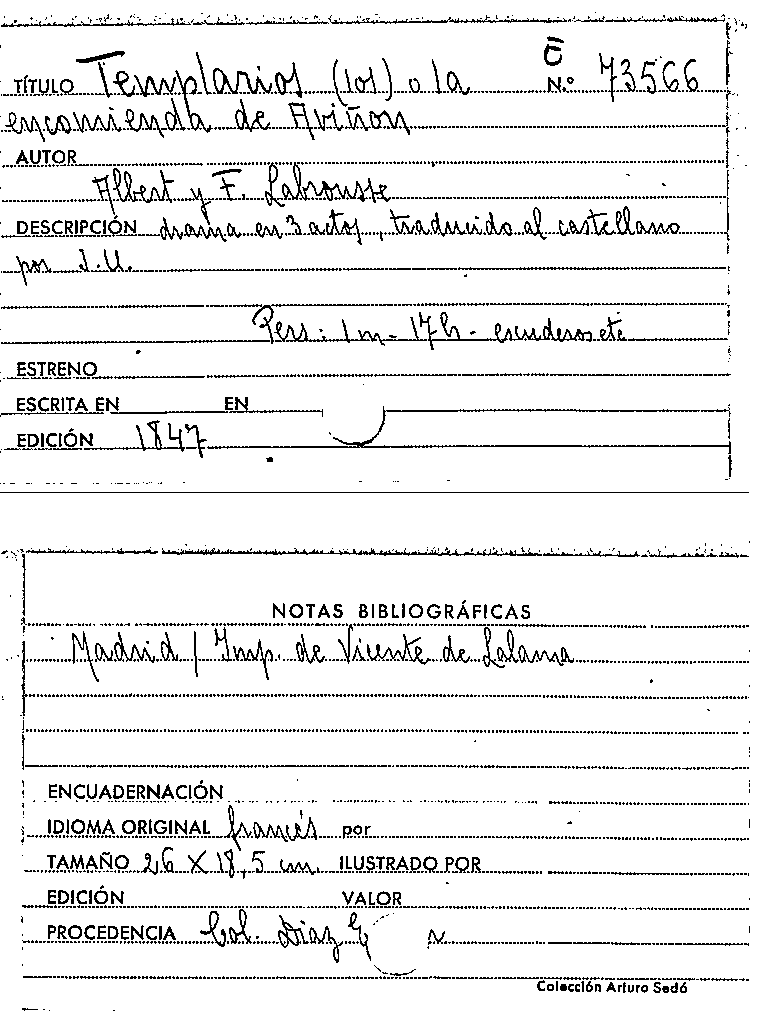 TÍTULO Templarios (los) o la C̄ N.º 73566
encomienda de Aviñon
AUTOR
Albert y F. Labrousse
DESCRIPCIÓN drama en 3 actos, traducido al castellano
por J.U.
Pers: 1 m - 17 h - escuderos etc
ESTRENO
ESCRITA EN EN
EDICIÓN 1847
NOTAS BIBLIOGRÁFICAS
Madrid / Imp. de Vicente de Lalama
ENCUADERNACIÓN
IDIOMA ORIGINAL francés por
TAMAÑO 26 X 18,5 cm. ILUSTRADO POR
EDICIÓN VALOR
PROCEDENCIA Col. Diaz
Colección Arturo Sedó